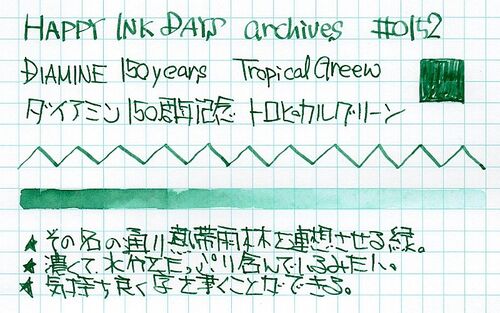 HAPPY INK DAYS archives #0152
DIAMINE 150years Tropical Green
ダイアミン150周年記念 トロピカルグリーン
★その名の通り熱帯雨林を連想させる緑。
★濃くて、水分をたっぷり含んでいるみたい。
★気持ち良く字を書くことができる。